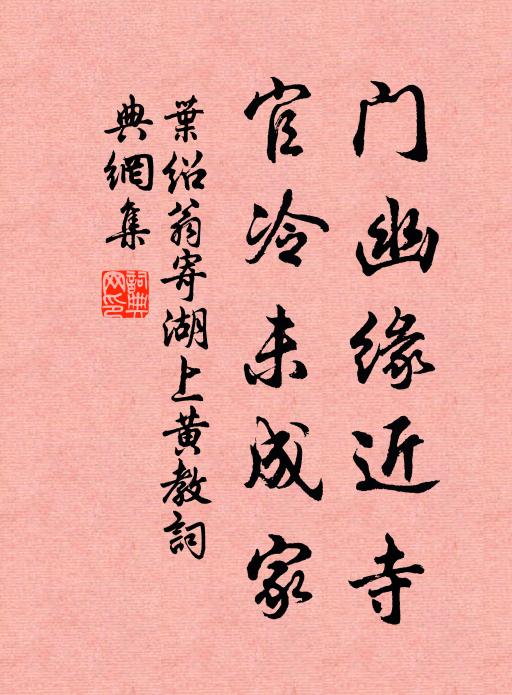 门幽缘近寺
官冷未成家
葉绍翁寄湖上黄教詞
典網集
詞典網印